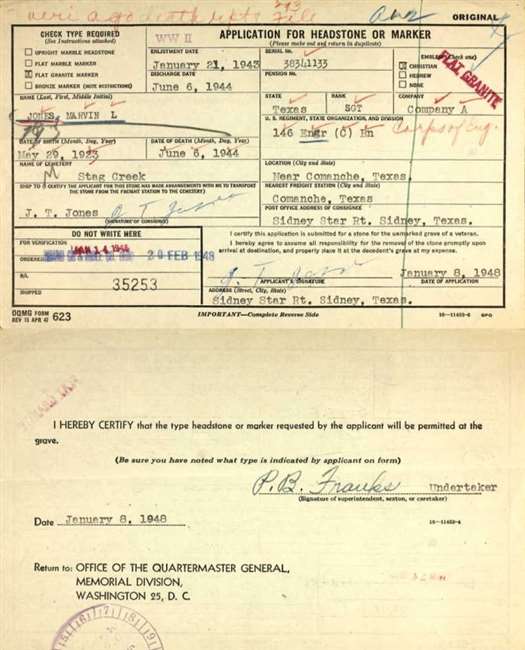 File
ORIGINAL
CHECK TYPE REQUIRED
(See Instructions attached)
WW II
APPLICATION FOR HEADSTONE OR MARKER
(Please make out and return in duplicate)
UPRIGHT MARBLE HEADSTONE
FLAT MARBLE MARKER
X FLAT GRANITE MARKER
BRONZE MARKER (NOTE RESTRICTIONS)
ENLISTMENT DATE
January 21, 1943
DISCHARGE DATE
June 6, 1944
SERIAL No.
38341133
PENSION No.
EMBLEM (Check one)
X CHRISTIAN
HEBREW
NONE
FLAT GRANITE
STATE
Texas
RANK
SGT
COMPANY
Company A
NAME (Last, First, Middle Initial)
JONES, MARVIN L
U. S. REGIMENT, STATE ORGANIZATION, AND DIVISION
146 Engr (C) Bn
Corps of Eng.
DATE OF BIRTH (Month, Day, Year)
May 29, 1923
DATE OF DEATH (Month, Day, Year)
June 6, 1944
NAME OF CEMETERY
Stag Creek
LOCATION (City and State)
Near Comanche, Texas
SHIP TO: I CERTIFY THE APPLICANT FOR THIS STONE HAS MADE ARRANGEMENTS WITH ME TO TRANSPORT THE STONE FROM THE FREIGHT STATION TO THE CEMETERY
NEAREST FREIGHT STATION (City and State)
Comanche, Texas
J. T. Jones
(SIGNATURE OF CONSIGNEE)
POST OFFICE ADDRESS OF CONSIGNEE
Sidney Star Rt. Sidney, Texas.
DO NOT WRITE HERE
FOR VERIFICATION
ORDERED
20 FEB 1948
B/L
35253
SHIPPED
I certify this application is submitted for a stone for the unmarked grave of a veteran.
I hereby agree to assume all responsibility for the removal of the stone promptly upon
arrival at destination, and properly place it at the decedent's grave at my expense.
J. T. Jones
January 8, 1948
APPLICANT'S SIGNATURE
DATE OF APPLICATION
ADDRESS (Street, City, State)
Sidney Star Rt. Sidney, Texas.
OQMG FORM
REV 15 APR 47 623
IMPORTANT—Complete Reverse Side
GPO
I HEREBY CERTIFY that the type headstone or marker requested by the applicant will be permitted at the
grave.
(Be sure you have noted what type is indicated by applicant on form)
P. B. Franks Undertaker
(Signature of superintendent, sexton, or caretaker)
Date January 8, 1948
Return to: OFFICE OF THE QUARTERMASTER GENERAL,
MEMORIAL DIVISION,
WASHINGTON 25, D. C.